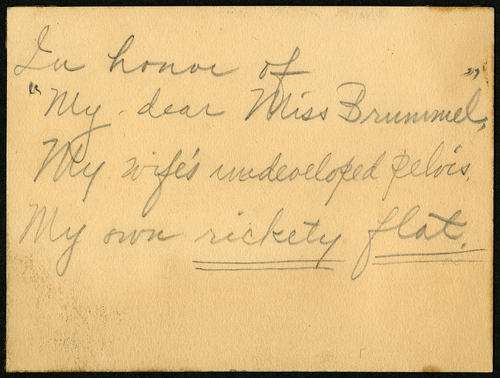 In honor of
"My dear Miss Brummel,"
My wife's undeveloped pelvis,
My own rickety flat.